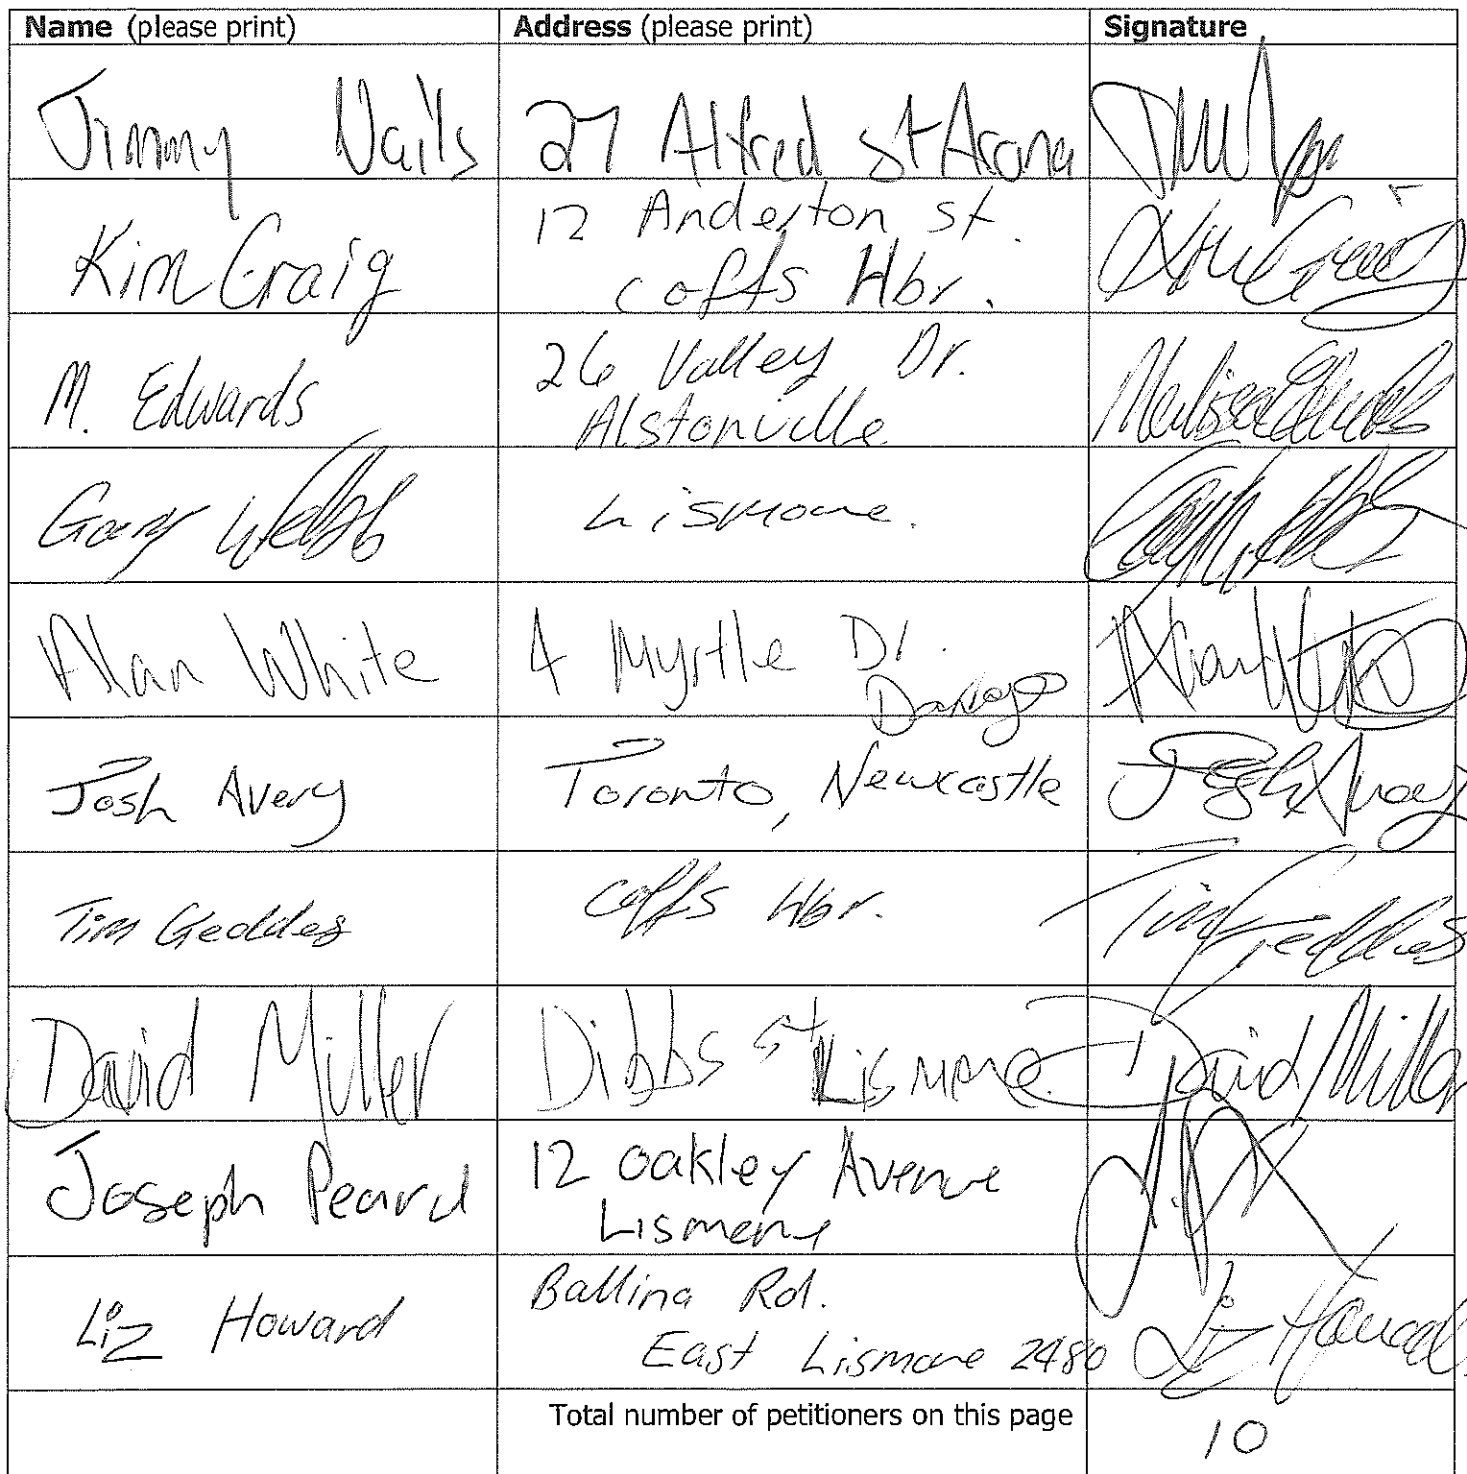 Name (please print) Address (please print) Signature
Jimmy Nails 27 Alfred st Arana
Kim Craig 12 Anderton st.
coffs Hbr. Kim Craig
M. Edwards 26 Valley Dr.
Alstonville Melissa Edwards
Gary Webb Lismore.
Alan White 4 Myrtle Dr.
Alan White
Josh Avery Toronto, Newcastle Josh Avery
Tim Geddes coffs Hbr. Tim Geddes
David Miller Dibbs st Lismore. David Miller
Joseph Peard 12 Oakley Avenue
Lismore
Liz Howard Ballina Rd.
East Lismore 2480 Liz Howard
Total number of petitioners on this page 10